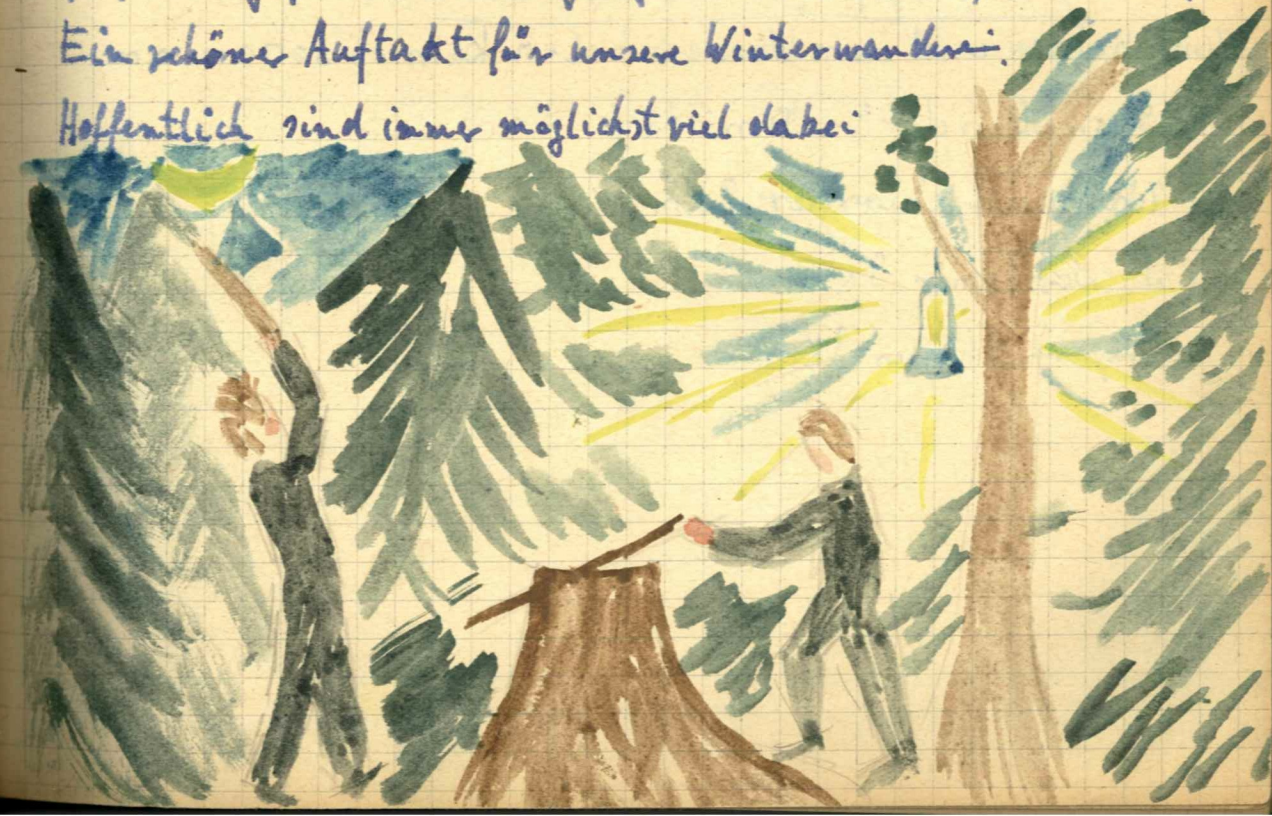 Ein schöner Auftakt für unsere Winterwanderei.
Hoffentlich sind immer möglichst viel dabei